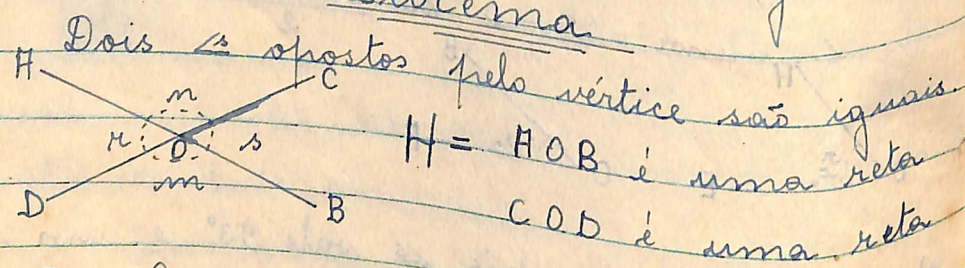 Dois ∠s opostos pelo vértice são iguais.
A C
n
r O s
m
D B
H = AOB é uma reta
COD é uma reta